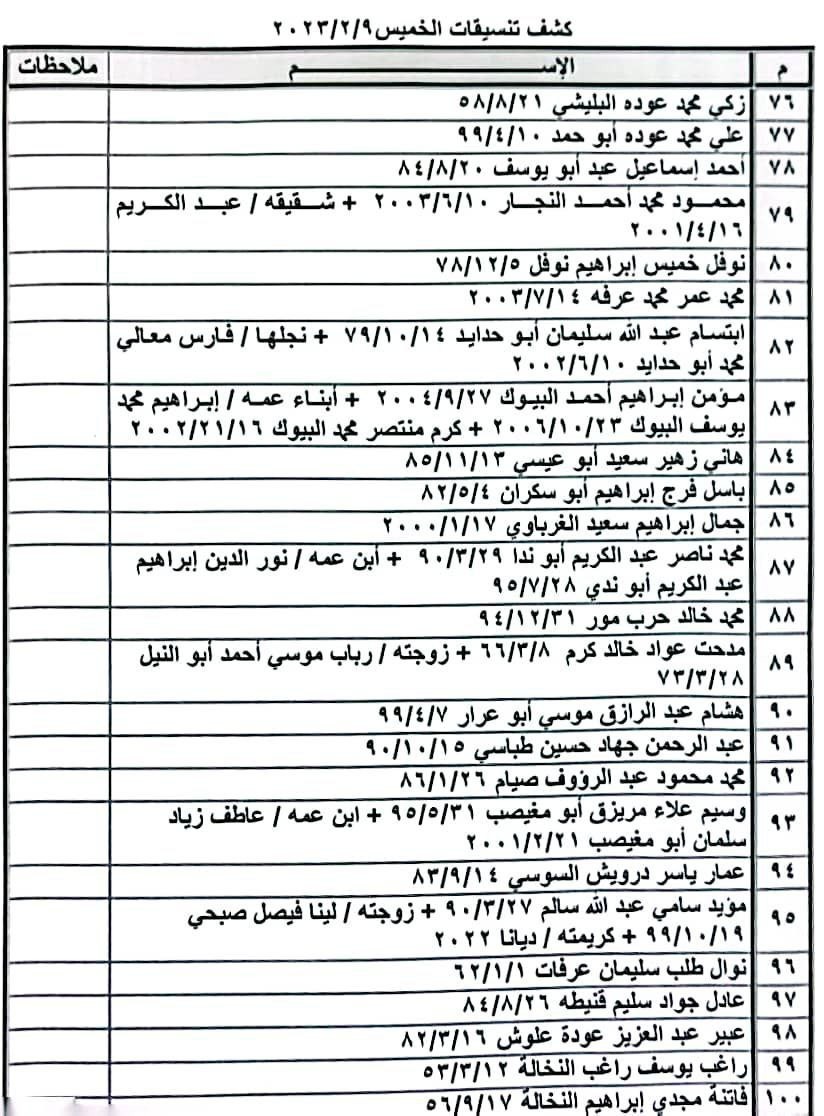 كشف تنسيقات الخميس ٢٠٢٣/٢/٩
م الإســـــــــــم ملاحظات
٧٦ زكي محمد عوده البليشي ٥٨/٨/٢١
٧٧ علي محمد عوده أبو حمد ٩٩/٤/١٠
٧٨ أحمد إسماعيل عبد أبو يوسف ٨٤/٨/٢٠
٧٩ محمود محمد أحمد النجار ٢٠٠٣/٦/١٠ + شقيقه / عبد الكريم
٢٠٠١/٤/١٦
٨٠ نوفل خميس إبراهيم نوفل ٧٨/١٢/٥
٨١ محمد عمر محمد عرفه ٢٠٠٣/٧/١٤
٨٢ ابتسام عبد الله سليمان أبو حدايد ٧٩/١٠/١٤ + نجلها / فارس معالي
محمد أبو حدايد ٢٠٠٢/٦/١٠
٨٣ مؤمن إبراهيم أحمد البيوك ٢٠٠٤/٩/٢٧ + أبناء عمه / إبراهيم محمد
يوسف البيوك ٢٠٠٦/١٠/٢٣ + كرم منتصر محمد البيوك ٢٠٠٢/٢١/١٦
٨٤ هاني زهير سعيد أبو عيسي ٨٥/١١/١٣
٨٥ باسل فرج إبراهيم أبو سكران ٨٢/٥/٤
٨٦ جمال إبراهيم سعيد الغرباوي ٢٠٠٠/١/١٧
٨٧ محمد ناصر عبد الكريم أبو ندا ٩٠/٣/٢٩ + أبن عمه / نور الدين إبراهيم
عبد الكريم أبو ندي ٩٥/٧/٢٨
٨٨ محمد خالد حرب مور ٩٤/١٢/٣١
٨٩ مدحت عواد خالد كرم ٦٦/٣/٨ + زوجته / رباب موسي أحمد أبو النيل
٧٣/٣/٢٨
٩٠ هشام عبد الرازق موسي أبو عرار ٩٩/٤/٧
٩١ عبد الرحمن جهاد حسين طباسي ٩٠/١٠/١٥
٩٢ محمد محمود عبد الرؤوف صيام ٨٦/١/٢٦
٩٣ وسيم علاء مريزق أبو مغيصب ٩٥/٥/٣١ + ابن عمه / عاطف زياد
سلمان أبو مغيصب ٢٠٠١/٢/٢١
٩٤ عمار ياسر درويش السوسي ٨٣/٩/١٤
٩٥ مؤيد سامي عبد الله سالم ٩٠/٣/٢٧ + زوجته / لينا فيصل صبحي
٩٩/١٠/١٩ + كريمته / ديانا ٢٠٢٢
٩٦ نوال طلب سليمان عرفات ٦٢/١/١
٩٧ عادل جواد سليم قنيطه ٨٤/٨/٢٦
٩٨ عبير عبد العزيز عودة علوش ٨٢/٣/١٦
٩٩ راغب يوسف راغب النخالة ٥٣/٣/١٢
١٠٠ فاتنة مجدي إبراهيم النخالة ٥٦/٩/١٧